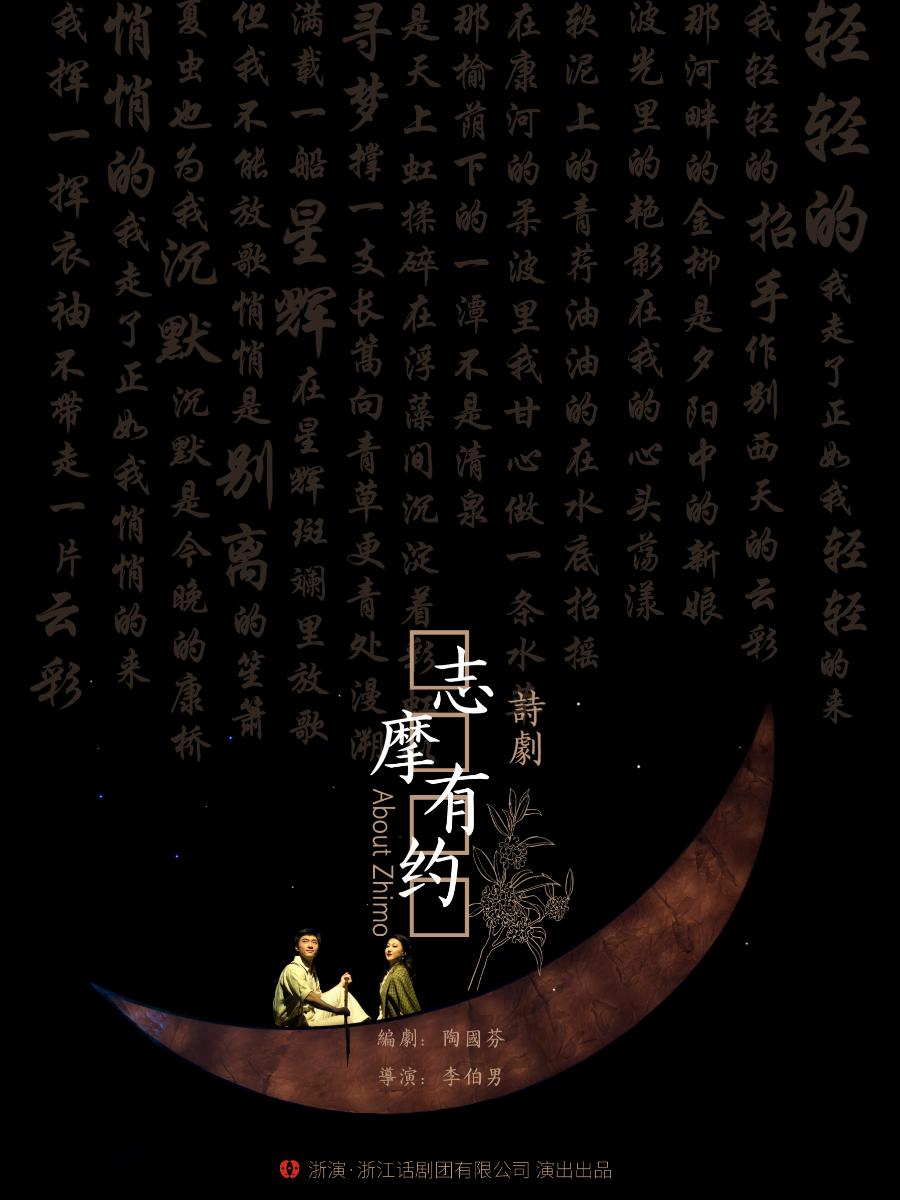 轻轻的我走了正如我轻轻的来
我轻轻的招手作别西天的云彩
那河畔的金柳是夕阳中的新娘
波光里的艳影在我的心头荡漾
软泥上的青荇油油的在水底招摇
在康河的柔波里我甘心做一条水
那榆荫下的一潭不是清泉
是天上虹揉碎在浮藻间沉淀着彩虹
寻梦撑一支长篙向青草更青处漫溯
满载一船星辉在星辉斑斓里放歌
但我不能放歌悄悄是别离的笙箫
夏虫也为我沉默沉默是今晚的康桥
悄悄的我走了正如我悄悄的来
我挥一挥衣袖不帶走一片云彩
詩劇
志摩有约
About Zhimo
編劇：陶國芬
導演：李伯男
浙演·浙江话剧团有限公司 演出出品